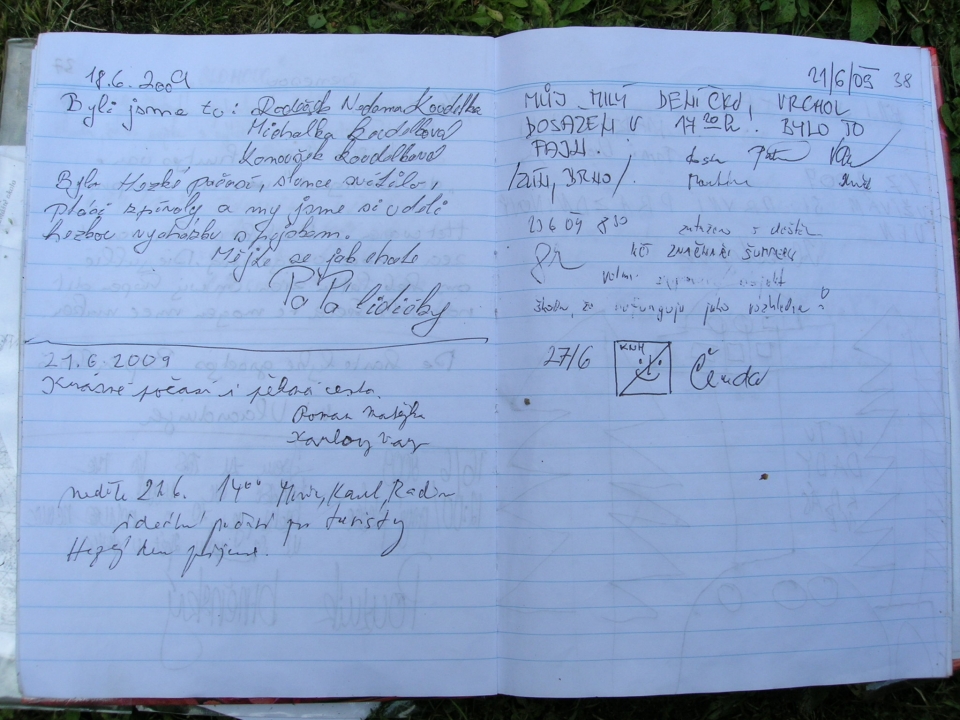 18.6.2009
Byli jsme to: Nedoma Koudelka
Michalka Koudelková
Koudelková
Bylo Hezké počasí, slunce svítilo,
ptáci zpívaly a my jsme si udělali
hezkou vycházku s pejskem.
Mějte se jak chcete
Pa Pa lidičky
21.6.2009
Krásné počasí i pěkná cesta.
Roman
Karlovy Vary
neděle 21.6. 14⁰⁰ Karel, Radim
ideální počasí pro turisty
Hezký den přejeme.
21/6/09 38
MŮJ MILÝ DENÍČKU, VRCHOL
DOSAŽEN V 17 20 h! BYLO TO
FAJN.
Petr
/ZLÍN, BRNO/. Martina
23 6 09 8 30 zataženo s deštěm
KČT ZNAČKAŘI ŠUMPERK
velmi zajímavý projekt
škoda, že nefunguje jako rozhledna!
27/6 KNH Čenda